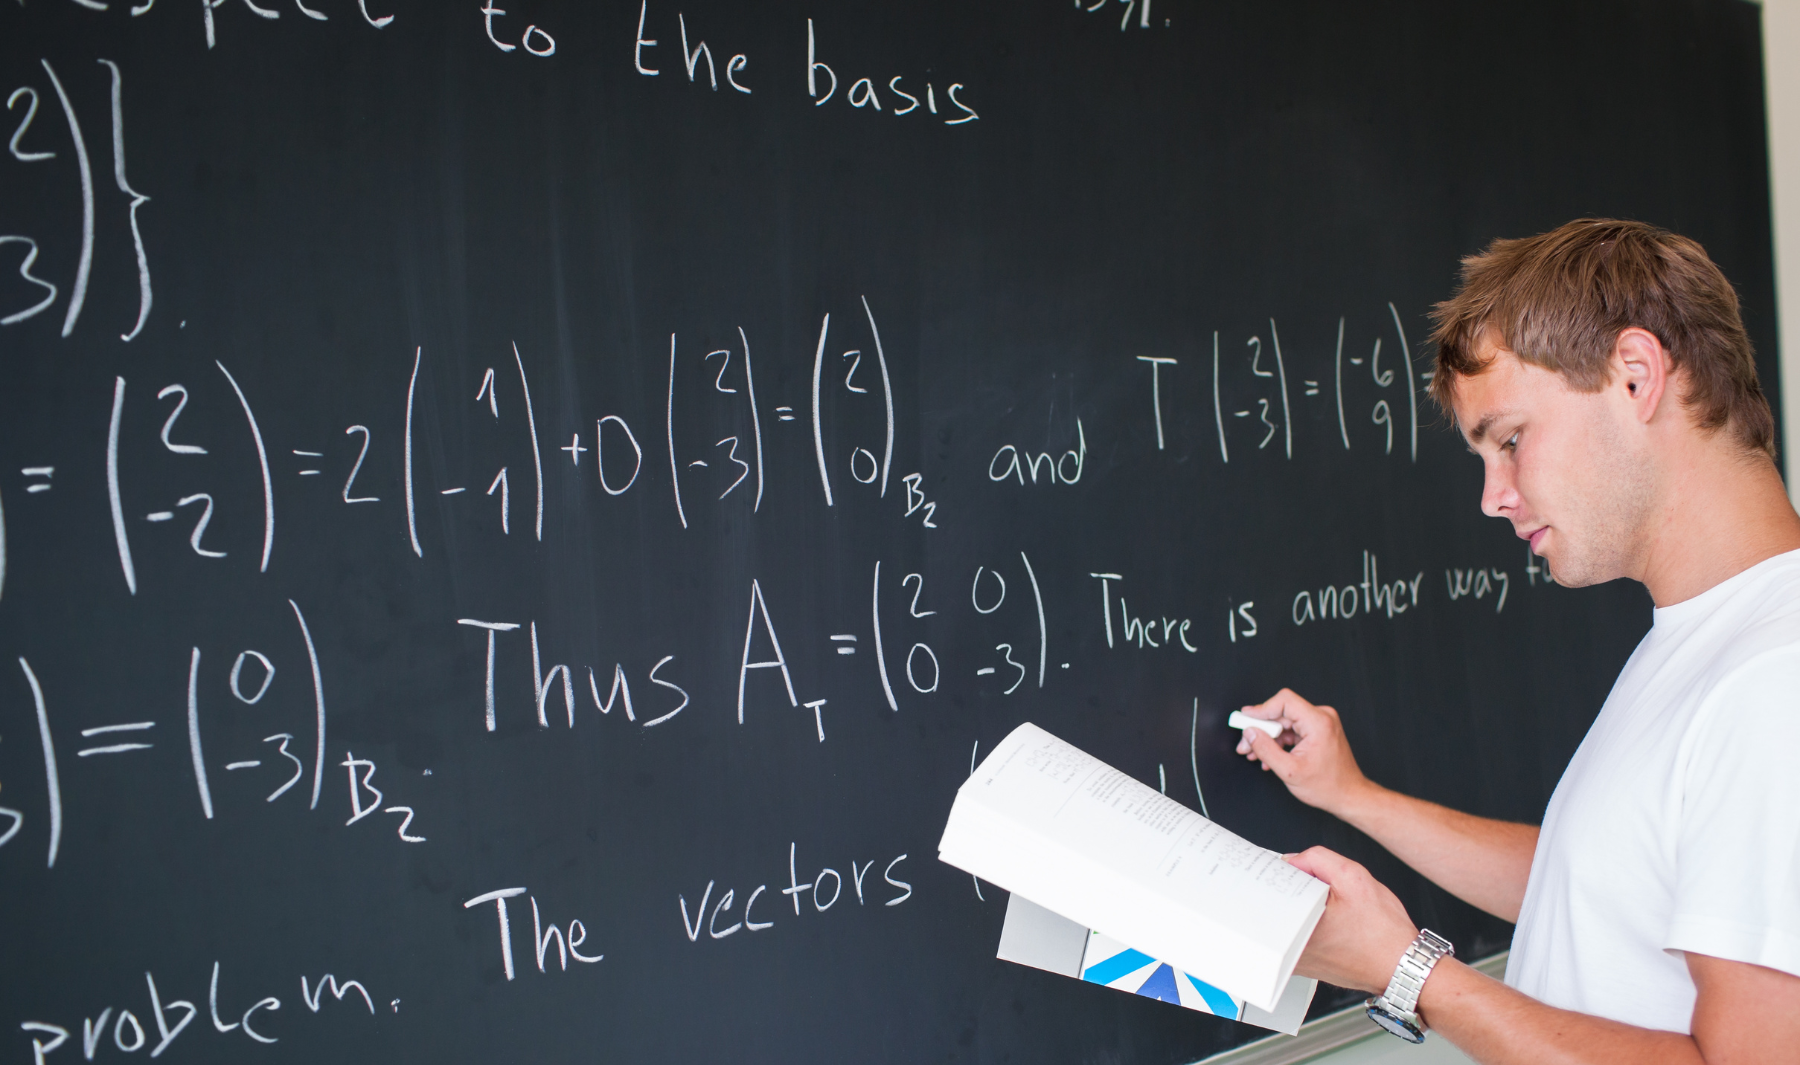 to the basis
2
3 ) } .
= ( 2 -2 ) = 2 ( 1 -1 ) + 0 ( 2 -3 ) = ( 2 0 )B2 and T ( 2 -3 ) = ( -6 9 ) =
) = ( 0 -3 )B2. Thus AT = ( 2 0 0 -3 ). There is another way
problem. The vectors (